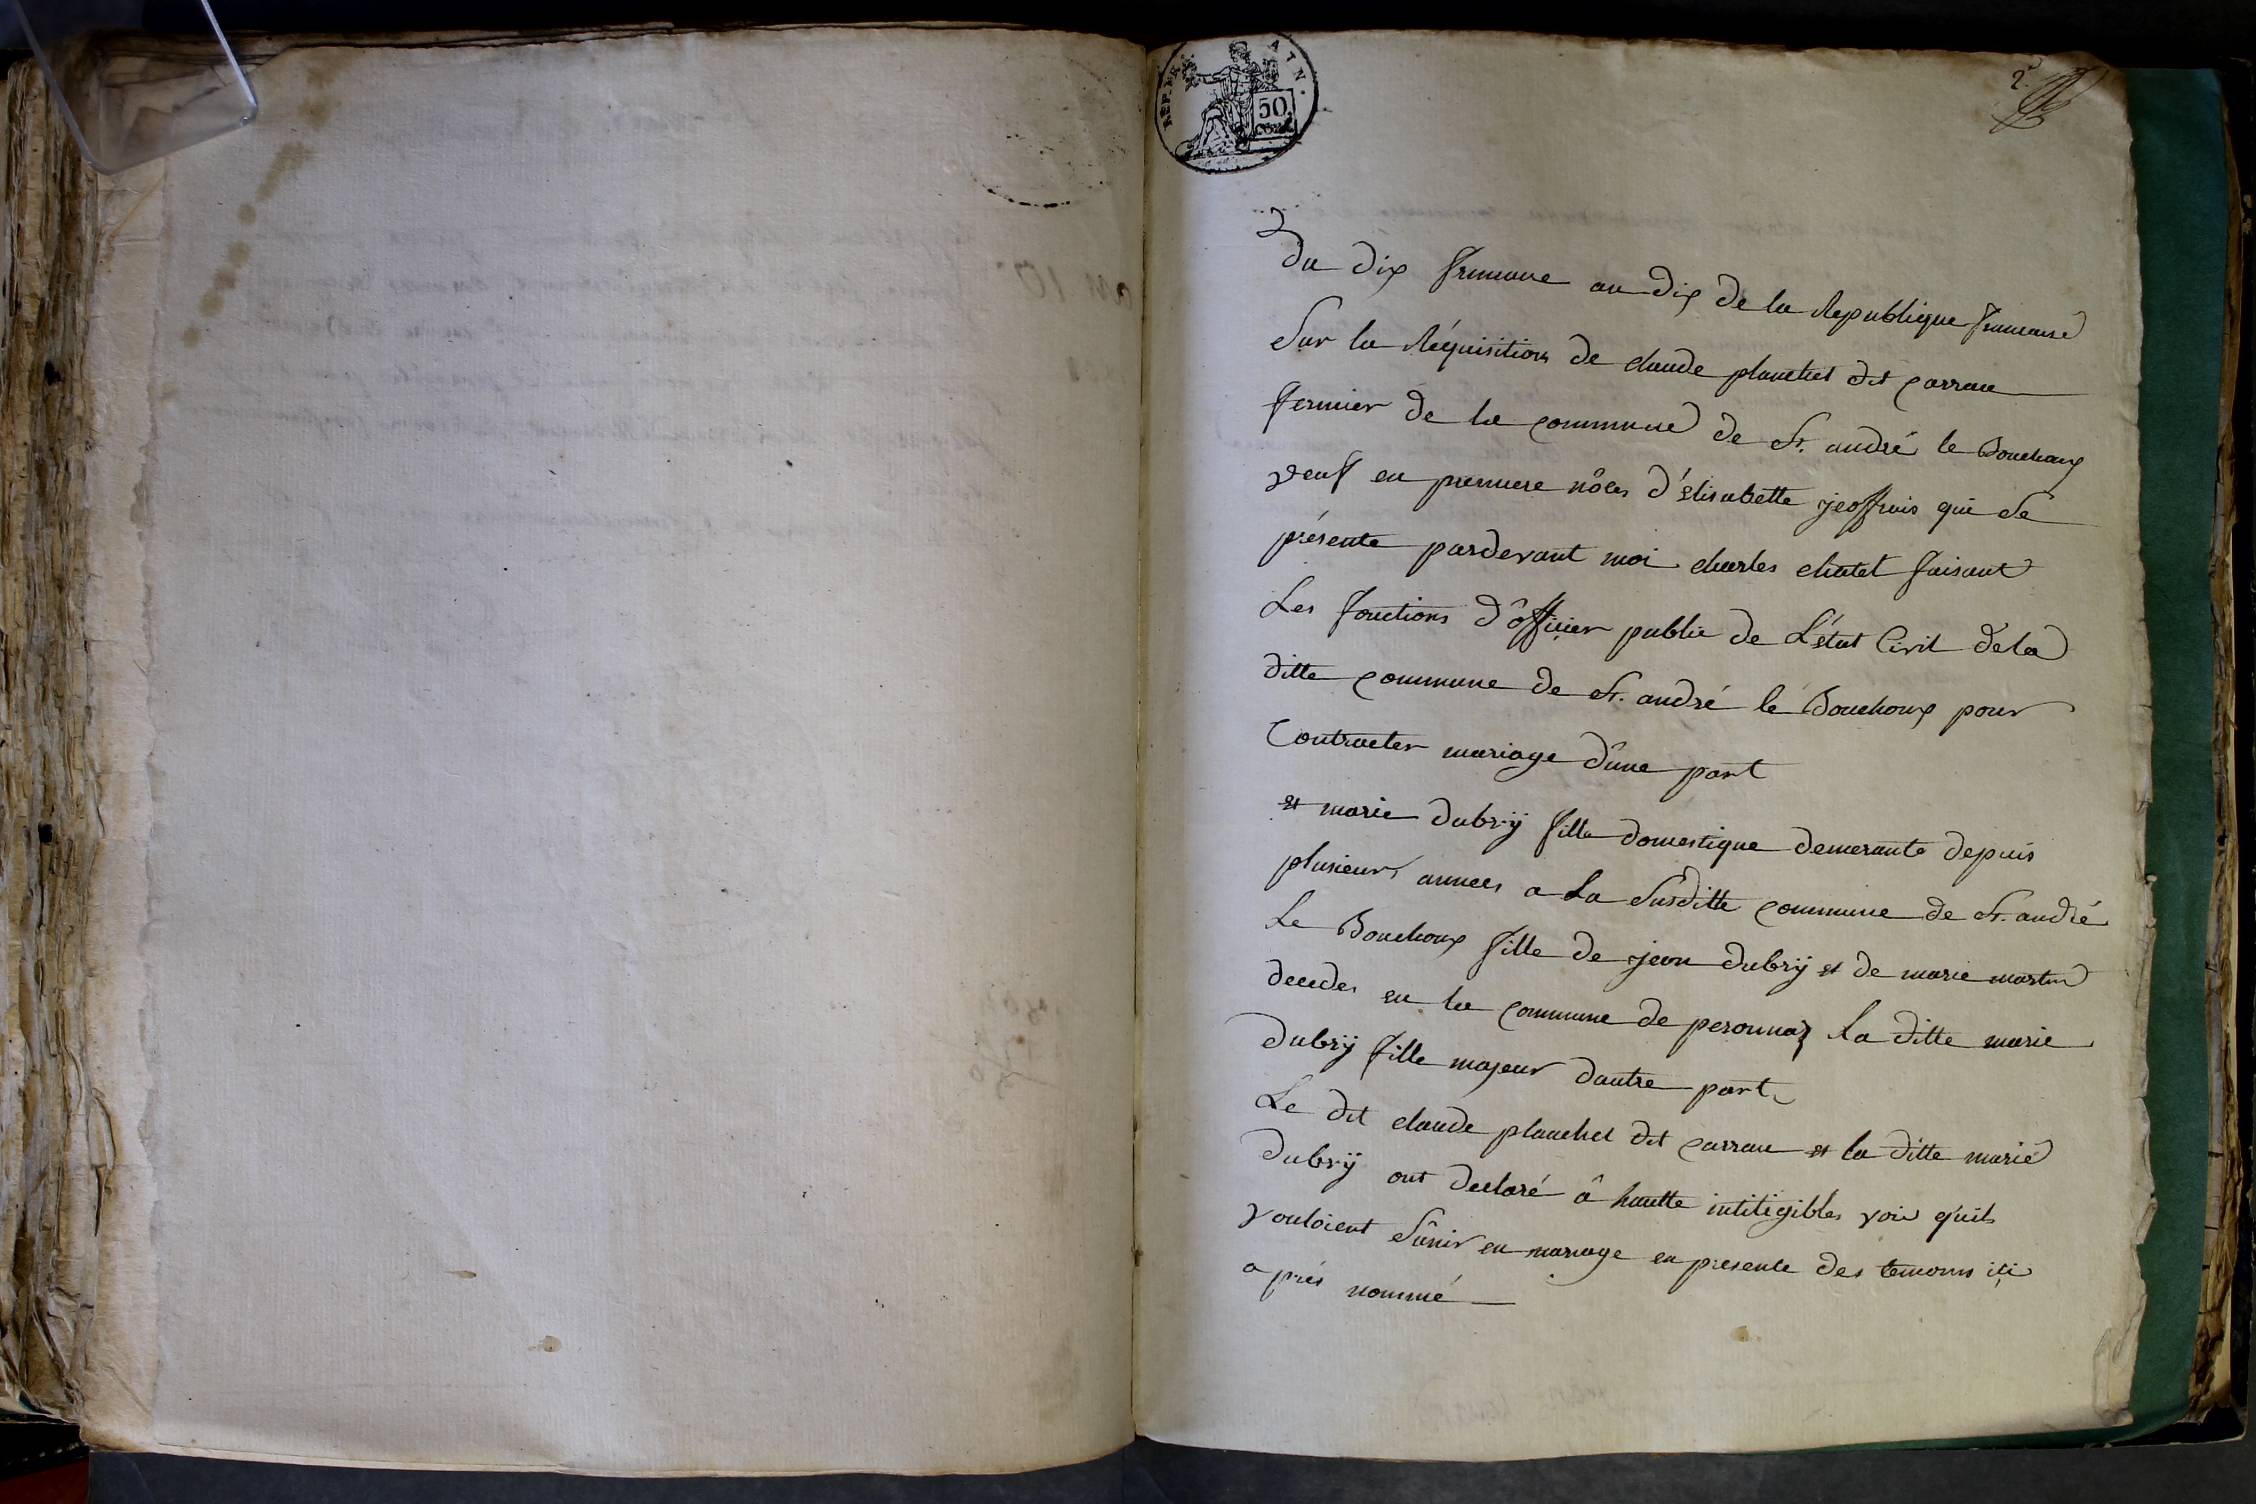 REP. FRA
ATN.
50
CENT
2.e
2
Du dix frimaire an dix de la Republique francaise
Sur la Réquisition de claude planchet dit carrau
fermier de la commune de St. andré le Bouchoux
veuf en premiere nôces d'élisabette jeoffrais qui se
présente pardevant moi charles chatel faisant
Les fonctions d'ôfficier public de L'état Civil de la
ditte commune de St. andré le Bouchoux pour
Contracter mariage d'une part
et marie dubrÿ fille domestique demerante depuis
plusieurs annees a La Susditte commune de St. andré
Le Bouchoux fille de jean dubrÿ et de marie martin
decedes en la commune de peronnaz la ditte marie
dubrÿ fille majeur dautre part
Le dit claude planchet dit carrau et la ditte marie
dubrÿ ont declaré â hautte intiligibles voix quils
vouloient S'ûnir en mariage en presente des temoins içi
a prés nommé